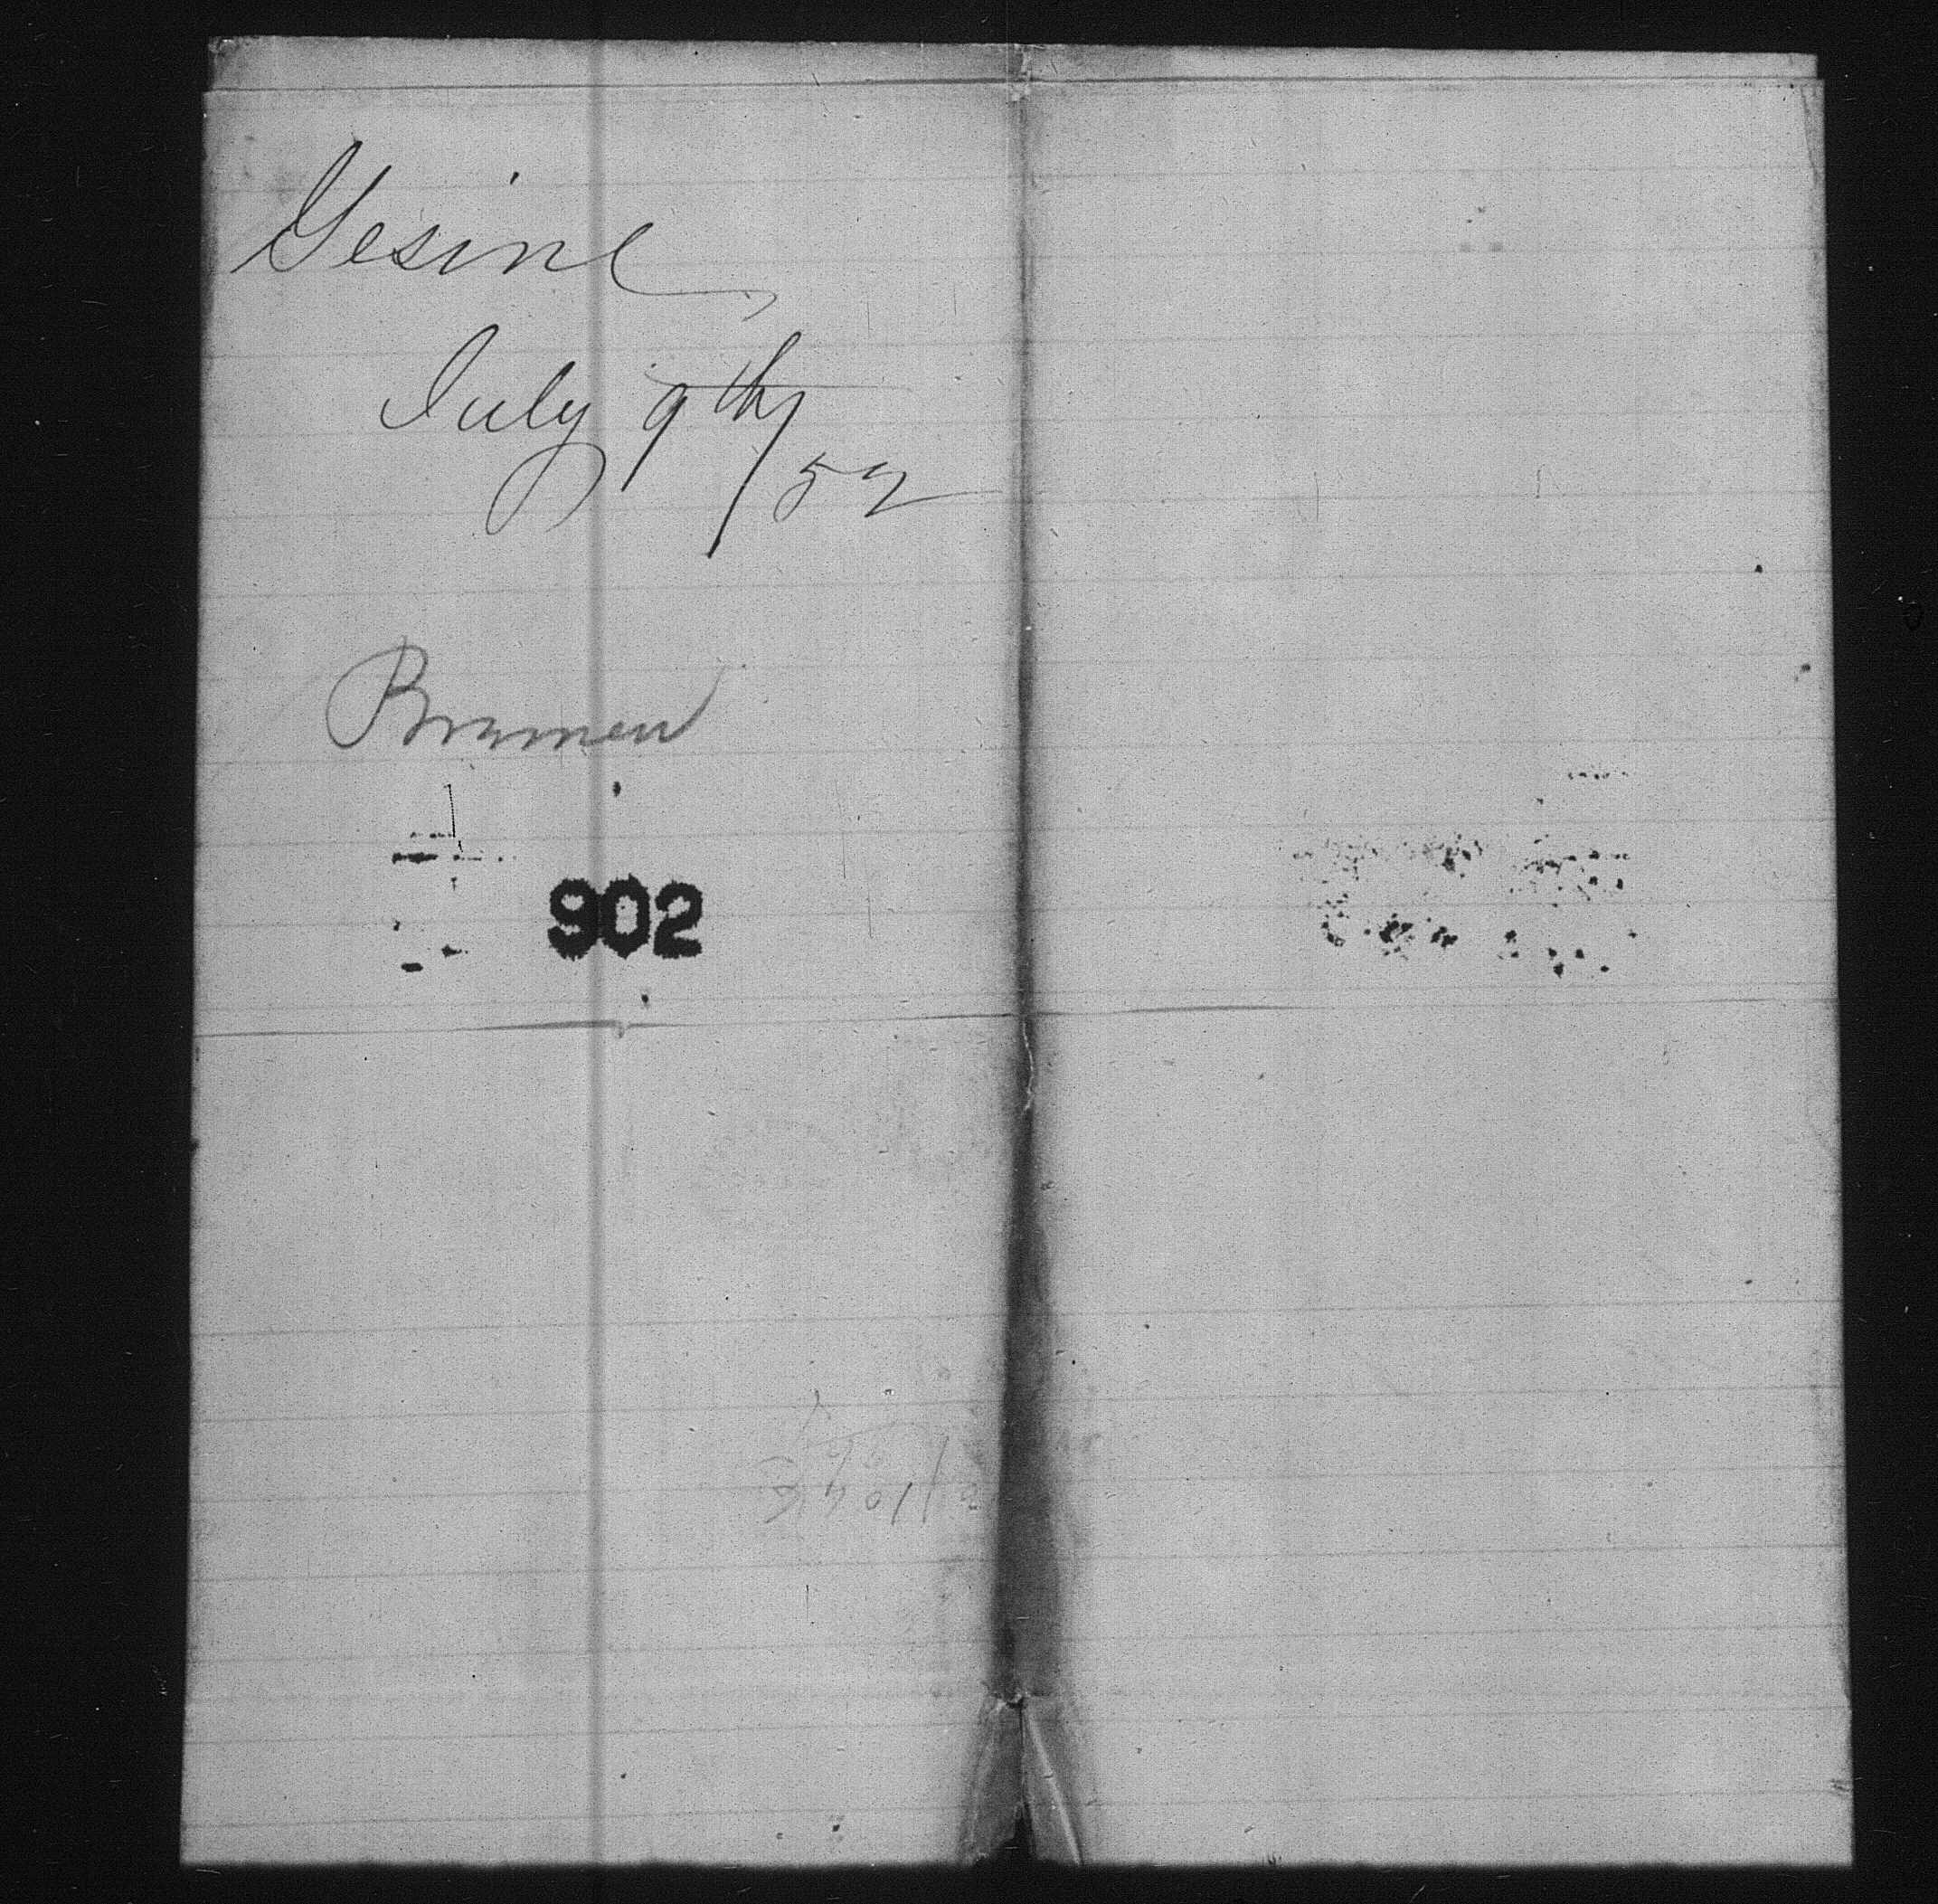 Gesine
July 9th/52
Bremen
902